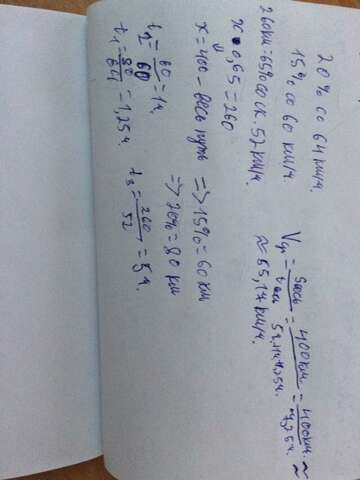 20% со 64 км/ч.
15% со 60 км/ч.
260км = 65% со ск. 52 км/ч.
x • 0,65 = 260
x = 400 - весь путь => 15% = 60 км
=> 20% = 80 км
t₂ = 60/60 = 1ч
t₁ = 80/64 = 1,25ч.
t₃ = 260/52 = 5ч.
Vср = Sвсь/tвсь = 400км./5ч+1ч+1,25ч. = 400км./7,25ч. ≈
≈ 55,17 км/ч.